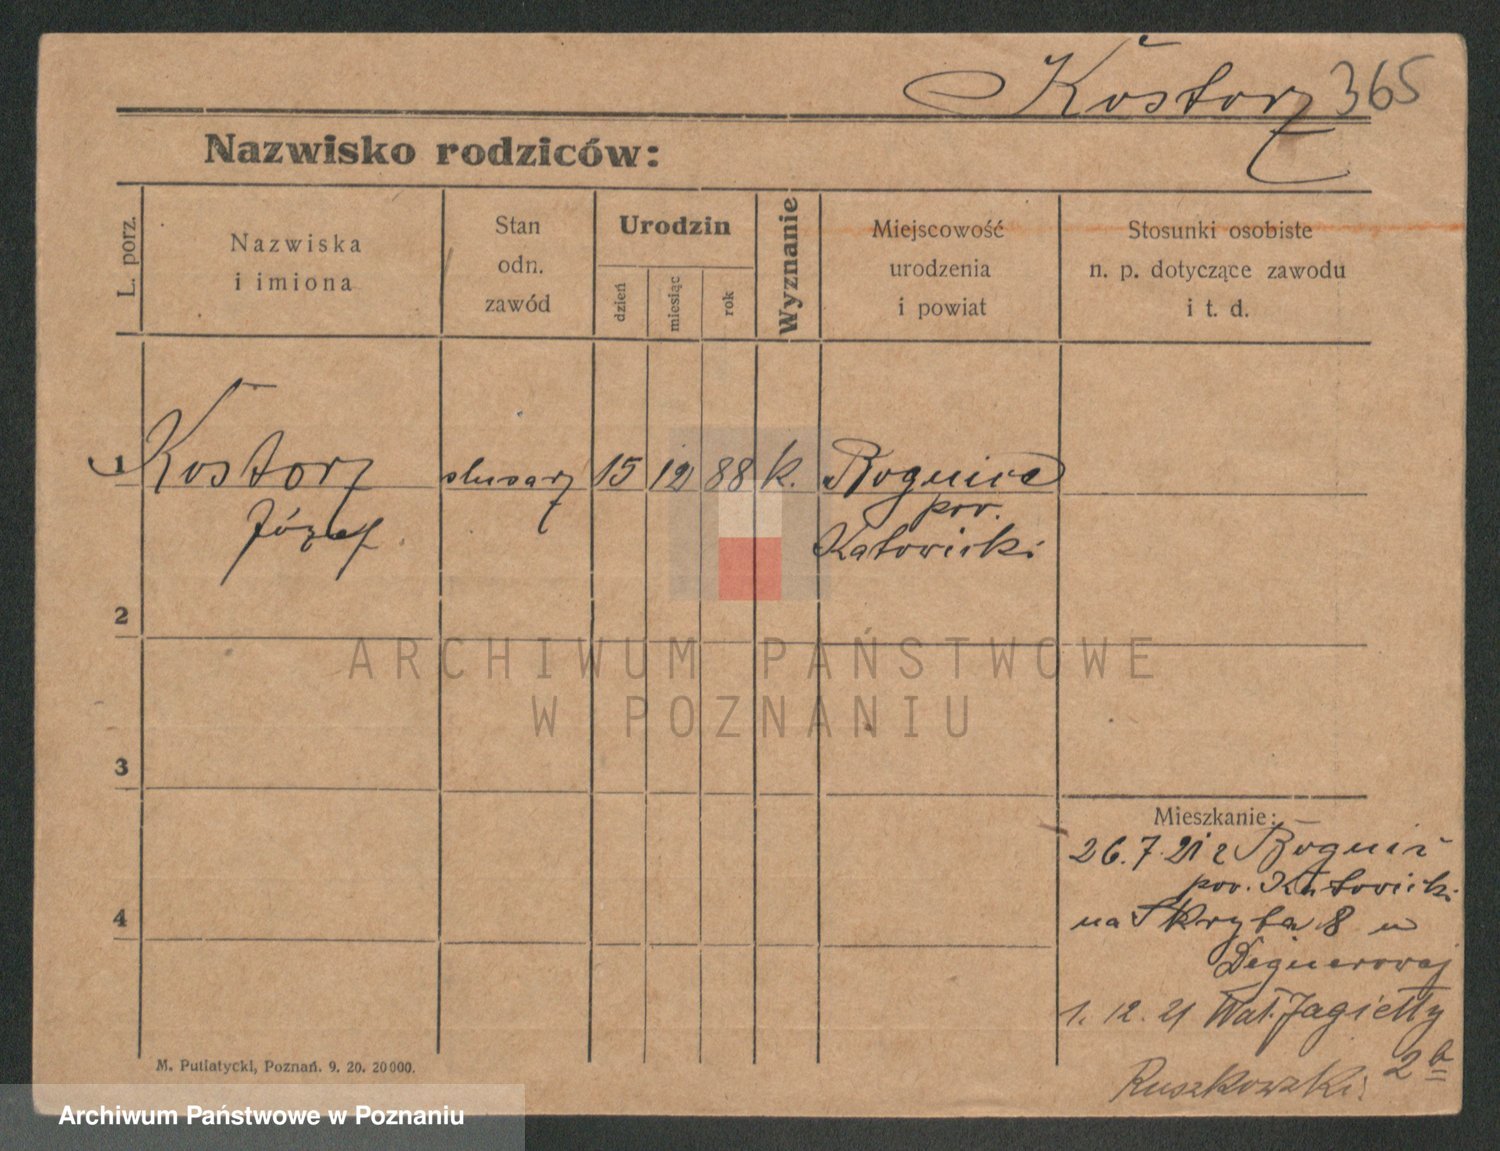 Kostorz 365
Nazwisko rodziców:
L. porz.
Nazwiska
i imiona
Stan
odn.
zawód
Urodzin
dzień
miesiąc
rok
Wyznanie
Miejscowość
urodzenia
i powiat
Stosunki osobiste
n. p. dotyczące zawodu
i t. d.
1 Kostorz ślusarz 15 12 88 k. Bogucice
Józef pow.
Katowicki
2
3
4
ARCHIWUM PAŃSTWOWE
W POZNANIU
Mieszkanie:
26.7.21 z
pow. Katowicki
na Skryta 8 u
Degnerowej
1.12.21 Wał. Jagiełły
2 b
Ruszkowski
M. Putiatycki, Poznań. 9. 20. 20000.
Archiwum Państwowe w Poznaniu